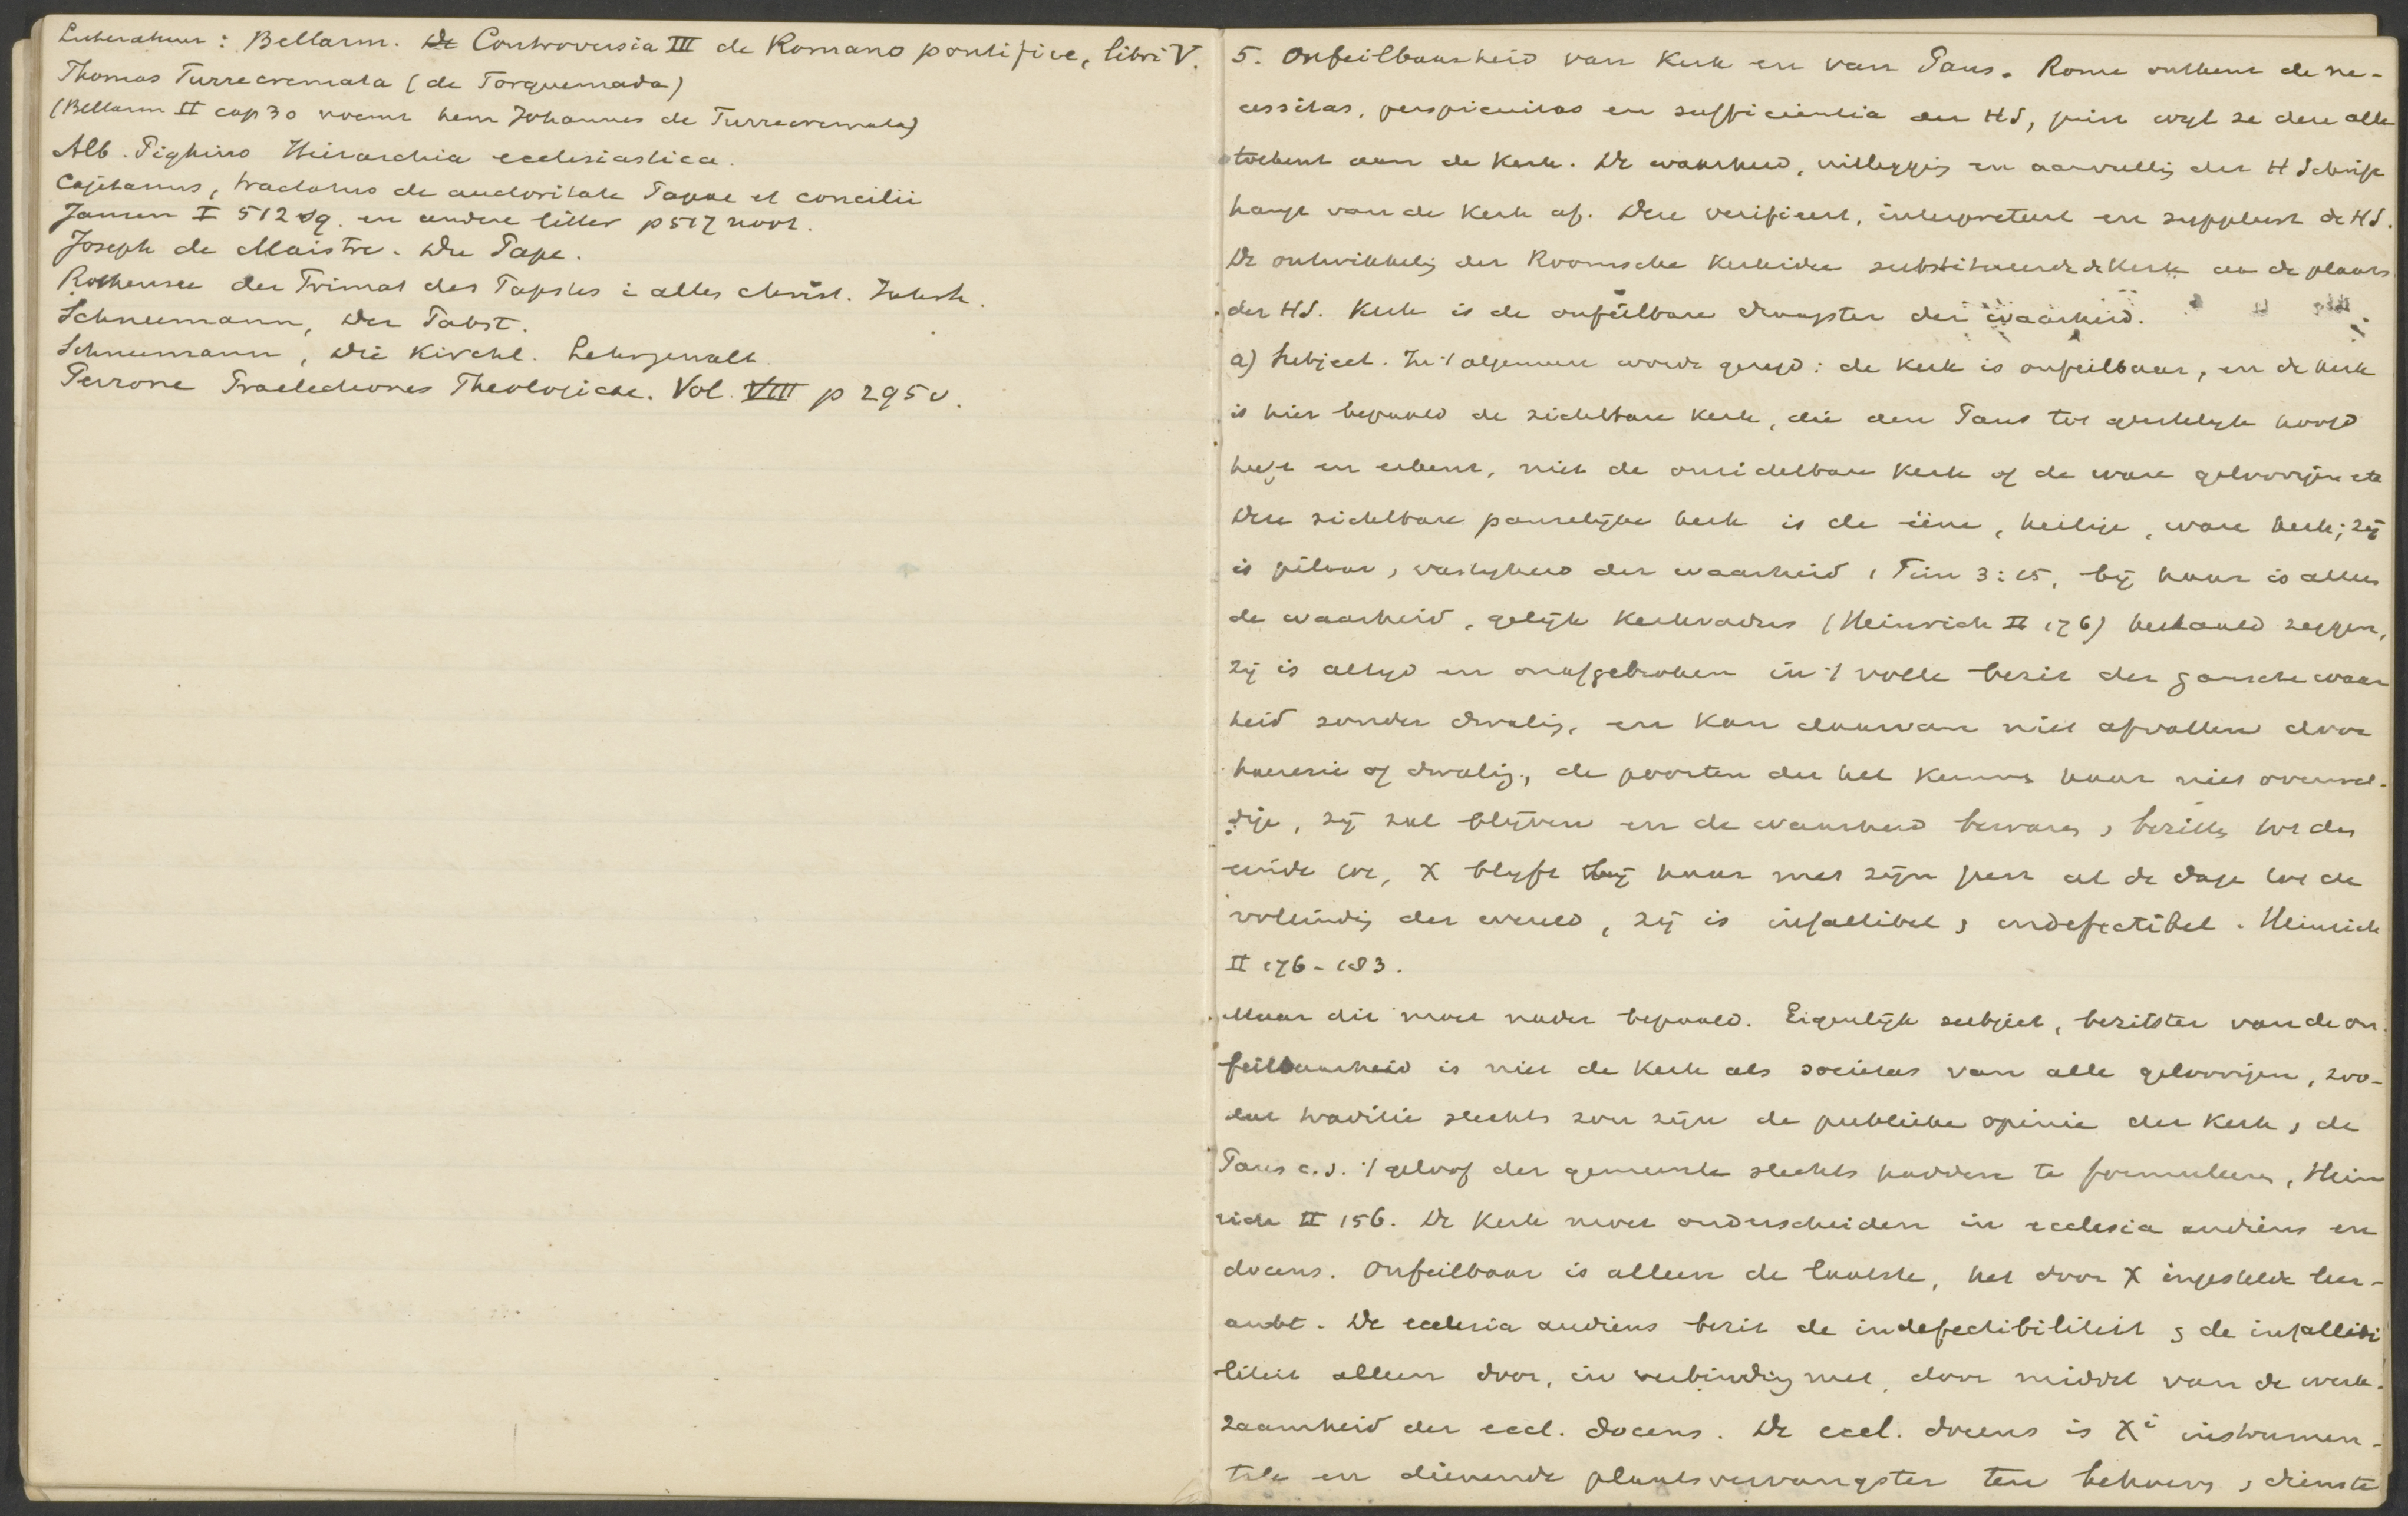 Litteratuur: Bellarm. De Controversia III de Romano pontifice, libri V.
Thomas Turrecremata (de Torquemada)
(Bellarm II cap 30 noemt hem Johannes de Turrecremata)
Alb. Pighius Hierarchia ecclesiastica.
Cajetanus, tractatus de auctoritate Papae et concilii
Jansen I 512 sq. en andere litter p 517 noot.
Joseph de Maistre. Du Pape.
Rothensee der Primat des Papstes i alles christ. Jahrh.
Schneemann, Der Pabst.
Schneemann, Die Kirchl. Lehrgewalt
Perrone Praelectiones Theologicae. Vol. VIII p 295 v.
5. Onfeilbaarheid van Kerk en van Paus. Rome ontkent de ne-
cessitas, perspicuitas en sufficientia der HS, juist wyl ze deze alle
toekent aan de Kerk. De waarheid, uitleggig en aanvullig der H Schrift
hangt van de Kerk af. Deze verifieert, interpreteert en suppleert de HS.
De ontwikkelig der Roomsche Kerkidee substitueerde de Kerk aan de plaats
der HS. Kerk is de onfeilbare draagster der waarheid.
a) Subject. In 't algemeen wordt gezegd: de Kerk is onfeilbaar, en de kerk
is hier bepaald de zichtbare Kerk, die den Paus tot geestelyk hoofd
heeft en erkent, niet de onzichtbare Kerk of de ware geloovigen etc
Deze zichtbare pauselijke kerk is de ééne, heilige, ware kerk; zij
is pilaar, vastigheid der waarheid 1 Tim 3:15, bij haar is alleen
de waarheid, gelijk Kerkvaders (Heinrich II 176) herhaald zeggen,
zij is altyd en onafgebroken in 't volle bezit der gansche waar
heid zonder dwalig, en kan daarvan niet afvallen door
haeresie of dwalig, de poorten der hel kunnen haar niet overwel-
dige, zij zal blijven en de waarheid bewaren, bezitten tot den
einde toe, X blyft bij haar met zijn geest al de dage tot de
voleindig der wereld, zij is infallibel, indefectibel. Heinrich
II 176-183.
Maar dit moet nader bepaald. Eigenlijk subject, bezitster van de on-
feilbaarheid is niet de Kerk als societas van alle geloovigen, zoo-
dat traditie slechts zou zijn de publieke opinie der Kerk, de
Paus c.s. 't geloof der gemeente slechts hadden te formuleren, Hein
rich II 156. De Kerk moet onderscheiden in ecclesia audiens en
docens. Onfeilbaar is alleen de laatste, het door X ingestelde leer-
ambt. De ecclesia audiens bezit de indefectibiliteit, de infallibi
liteit alleen door, in verbindig met, door middel van de werk-
zaamheid der eccl. docens. De eccl. docens is Xi instrumen-
tele en dienende plaatsvervangster ten behoeve, dienste